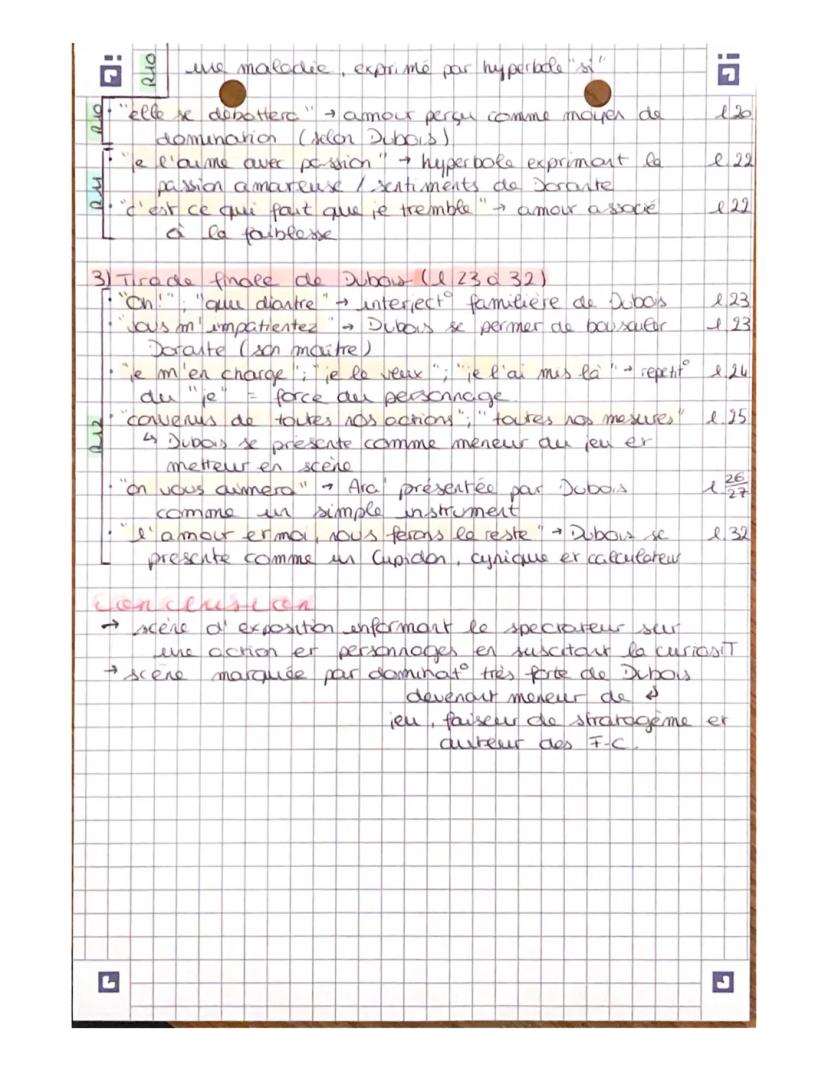 R10
une maladie, exprimé par hyperbole "si"
R10
• "elle se débattera" → amour perçu comme moyen de l 20
domination (selon Dubois)
R11
• "je l'aime avec passion" → hyperbole exprimant la l 22
passion amoureuse / sentiments de Dorante
• "c'est ce qui fait que je tremble" → amour associé l 22
à la faiblesse
3) Tirade finale de Dubois (l 23 à 32)
R12
• "Oh!" ; "que diantre" → interject° familière de Dubois l.23
• "vous m'impatientez" → Dubois se permer de bousculer l 23
Dorante (son maître)
• "je m'en charge" ; "je le veux" ; "je l'ai mis là" → repetit° l 24
du "je" = force du personnage
• "convenus de toutes nos actions" ; "toutes nos mesures" l.25
↳ Dubois se présente comme meneur du jeu et
metteur en scène
• "on vous aimera" → Ara' présentée par Dubois l 26/27
comme un simple instrument
• "l'amour et moi, nous ferons le reste" → Dubois se l.32
présente comme un Cupidon, cynique et calculateur
Conclusion
→ scène d'exposition informant le spectateur sur
une action et personnages en suscitant la curiosiT
→ scène marquée par dominat° très forte de Dubois
devenant meneur de ↲
jeu, faiseur de stratagème et
auteur des F-C.